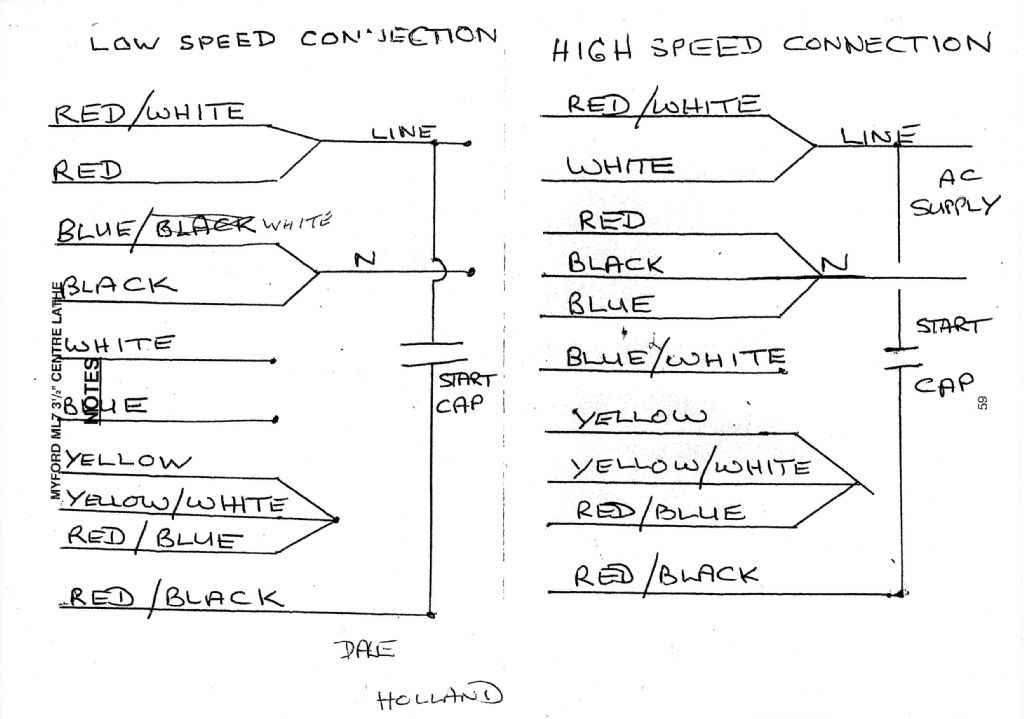 LOW SPEED CONNECTION
RED/WHITE
LINE
RED
BLUE/BLACK WHITE
N
BLACK
WHITE
START
CAP
BLUE
YELLOW
YELLOW/WHITE
RED/BLUE
RED/BLACK
DALE
HOLLAND
MYFORD ML7 3½" CENTRE LATHE
NOTES
HIGH SPEED CONNECTION
RED/WHITE
LINE
WHITE
AC
SUPPLY
RED
BLACK
N
BLUE
START
CAP
BLUE/WHITE
YELLOW
YELLOW/WHITE
RED/BLUE
RED/BLACK
59